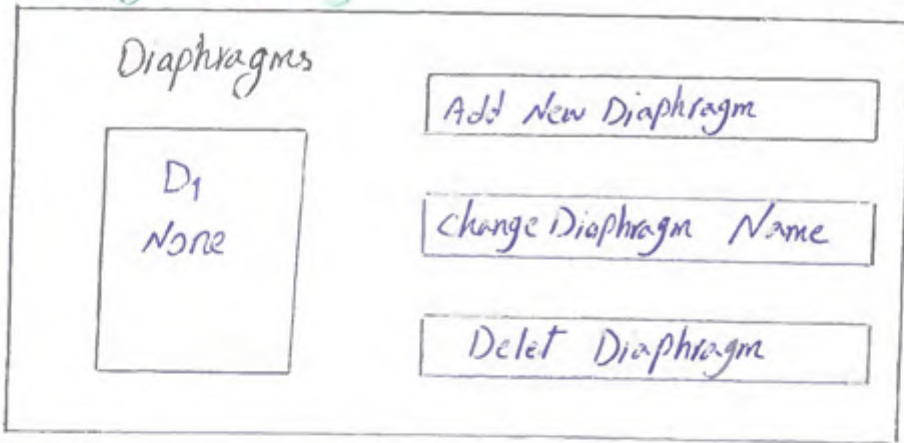 Diaphragms
D1
None
Add New Diaphragm
change Diaphragm Name
Delet Diaphragm